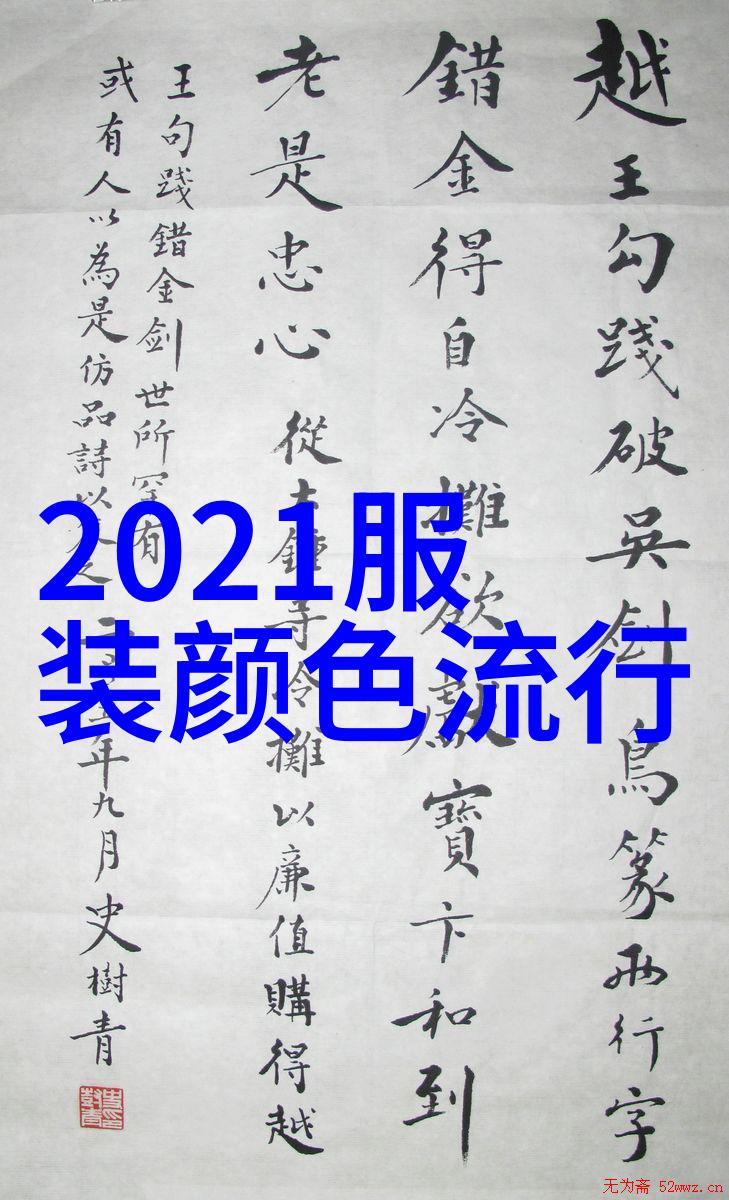 越王勾踐破吳剑鳥篆两行字
錯金得自冷攤欲獻寶卞和到
老是忠心 從大鐘寺冷攤以廉值購得越
王句踐錯金剑世所罕有
或有人以為是仿品詩以之 二年九月史樹青
2021服
装颜色流行
无为斋 52wwz.cn